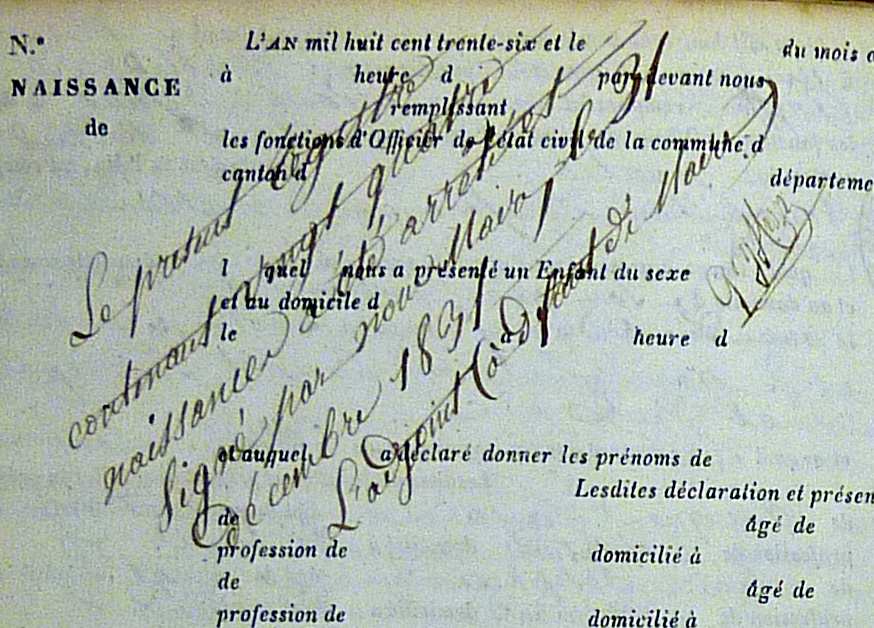 N.º
NAISSANCE
de
L'AN mil huit cent trente-six et le du mois d
à heure d par-devant nous
remplissant
les fonctions d'Officier de l'état civil de la commune d
canton d départeme
l quel nous a présenté un Enfant du sexe
et au domicile d
le à heure d
et auquel a déclaré donner les prénoms de
Lesdites déclaration et présen
de âgé de
profession de domicilié à
de âgé de
profession de domicilié à
Le présent registre
contenant vingt quatre
naissances a été arrêté et
Signé par nous Maire, le 31
Décembre 183
L'adjoint (à défaut de Maire)